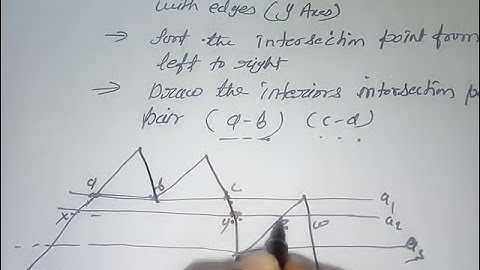 with edges (y Axes)
→ Sort the intersection point from
left to right
→ Draw the interiors intersection p
pair (a-b) (c-d)
a b c a1
x y z w a2
a3